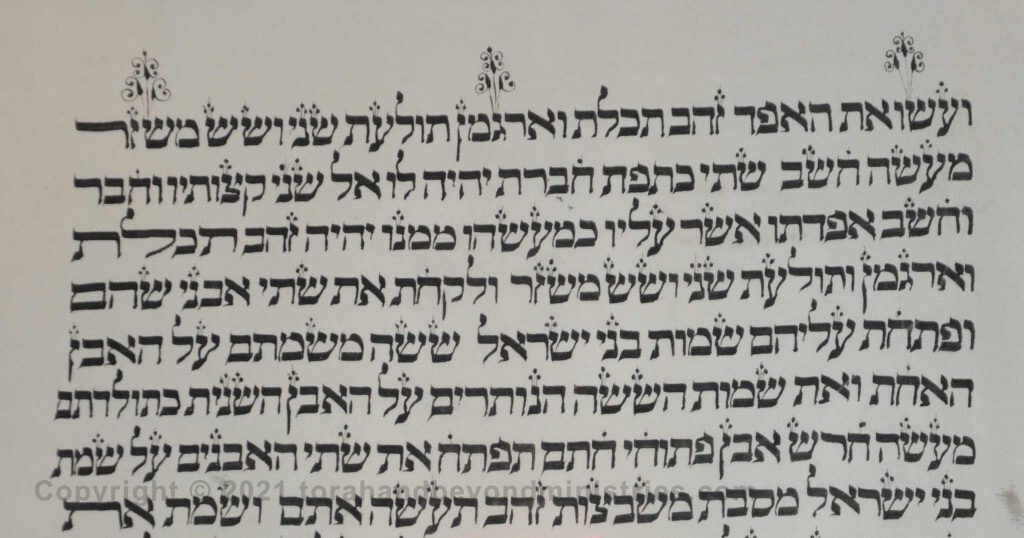 ועשו את האפד זהב תכלת וארגמן תולעת שני ושש משזר
מעשה חשב שתי כתפת חברת יהיה לו אל שני קצותיו וחבר
וחשב אפדתו אשר עליו כמעשהו ממנו יהיה זהב תכלת
וארגמן ותולעת שני ושש משזר ולקחת את שתי אבני שהם
ופתחת עליהם שמות בני ישראל ששה משמתם על האבן
האחת ואת שמות הששה הנותרים על האבן השנית כתולדתם
מעשה חרש אבן פתוחי חתם תפתח את שתי האבנים על שמת
בני ישראל מסבת משבצות זהב תעשה אתם ושמת את
Copyright © 2021 torahandbeyondministries.com